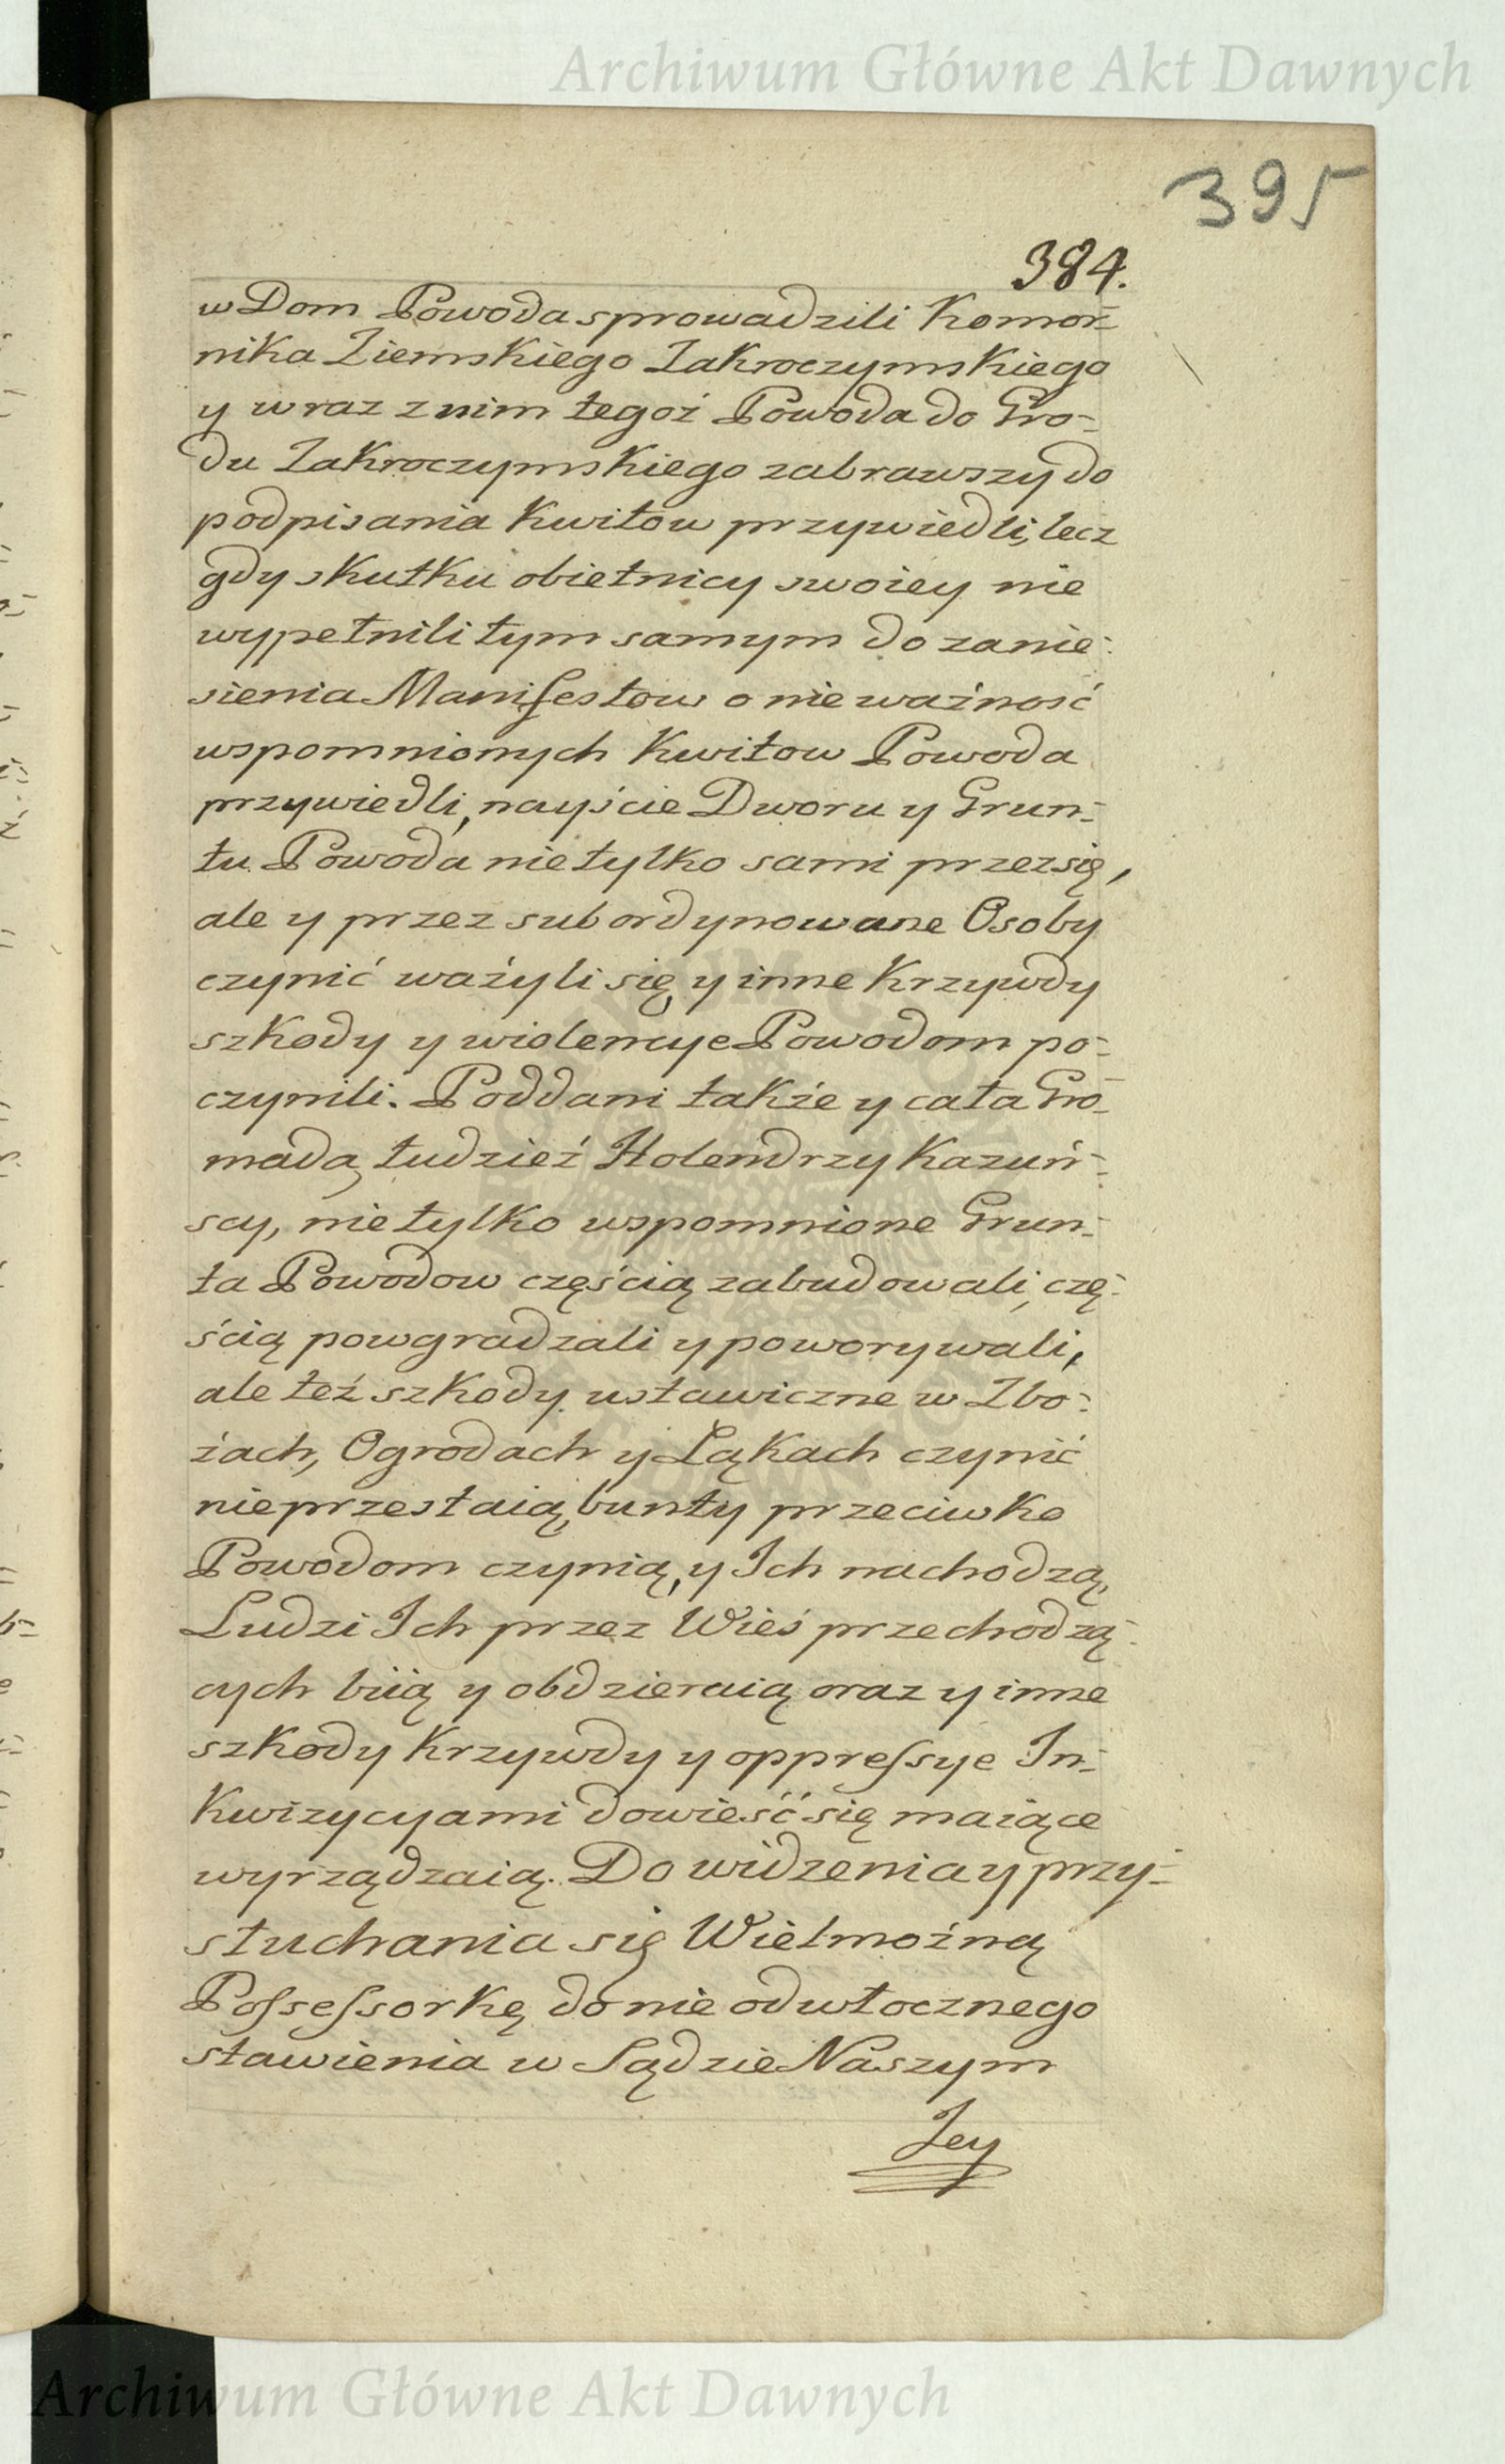 Archiwum Główne Akt Dawnych
395
384.
w Dom Powoda sprowadzili Komor-
nika Ziemskiego Zakroczymskiego
y wraz z nim tegoż Powoda do Gro-
du Zakroczymskiego zabrawszy do
podpisania Kwitow przywiedli, lecz
gdy skutku obietnicy swoiey nie
wypełnili tym samym do zanie-
sienia Manifestow o nie ważność
wspomnionych Kwitow Powoda
przywiedli, nayście Dworu y Grun-
tu Powoda nie tylko sami przez się,
ale y przez subordynowane Osoby
czynić ważyli się, y inne Krzywdy
szkody y wiolencye Powodom po-
czynili. Poddani także y cała Gro-
mada, tudzież Holendrzy Kazuń-
scy, nie tylko wspomnione Grun-
ta Powodow częścią zabudowali, czę-
ścią powgradzali y poworywali,
ale też szkody ustawiczne w Zbo-
żach, Ogrodach y Łąkach czynić
nieprzestaią, bunty przeciwko
Powodom czynią, y Ich nachodzą,
Ludzi Ich przez Wieś przechodzą-
cych biią y obdzieraią oraz y inne
szkody Krzywdy y oppressye In-
kwizycyami dowieść się maiące
wyrządzaią. Do widzenia y przy-
słuchania się Wielmożną
Possessorkę do nie odwłocznego
stawienia w Sądzie Naszym
Jey
Archiwum Główne Akt Dawnych